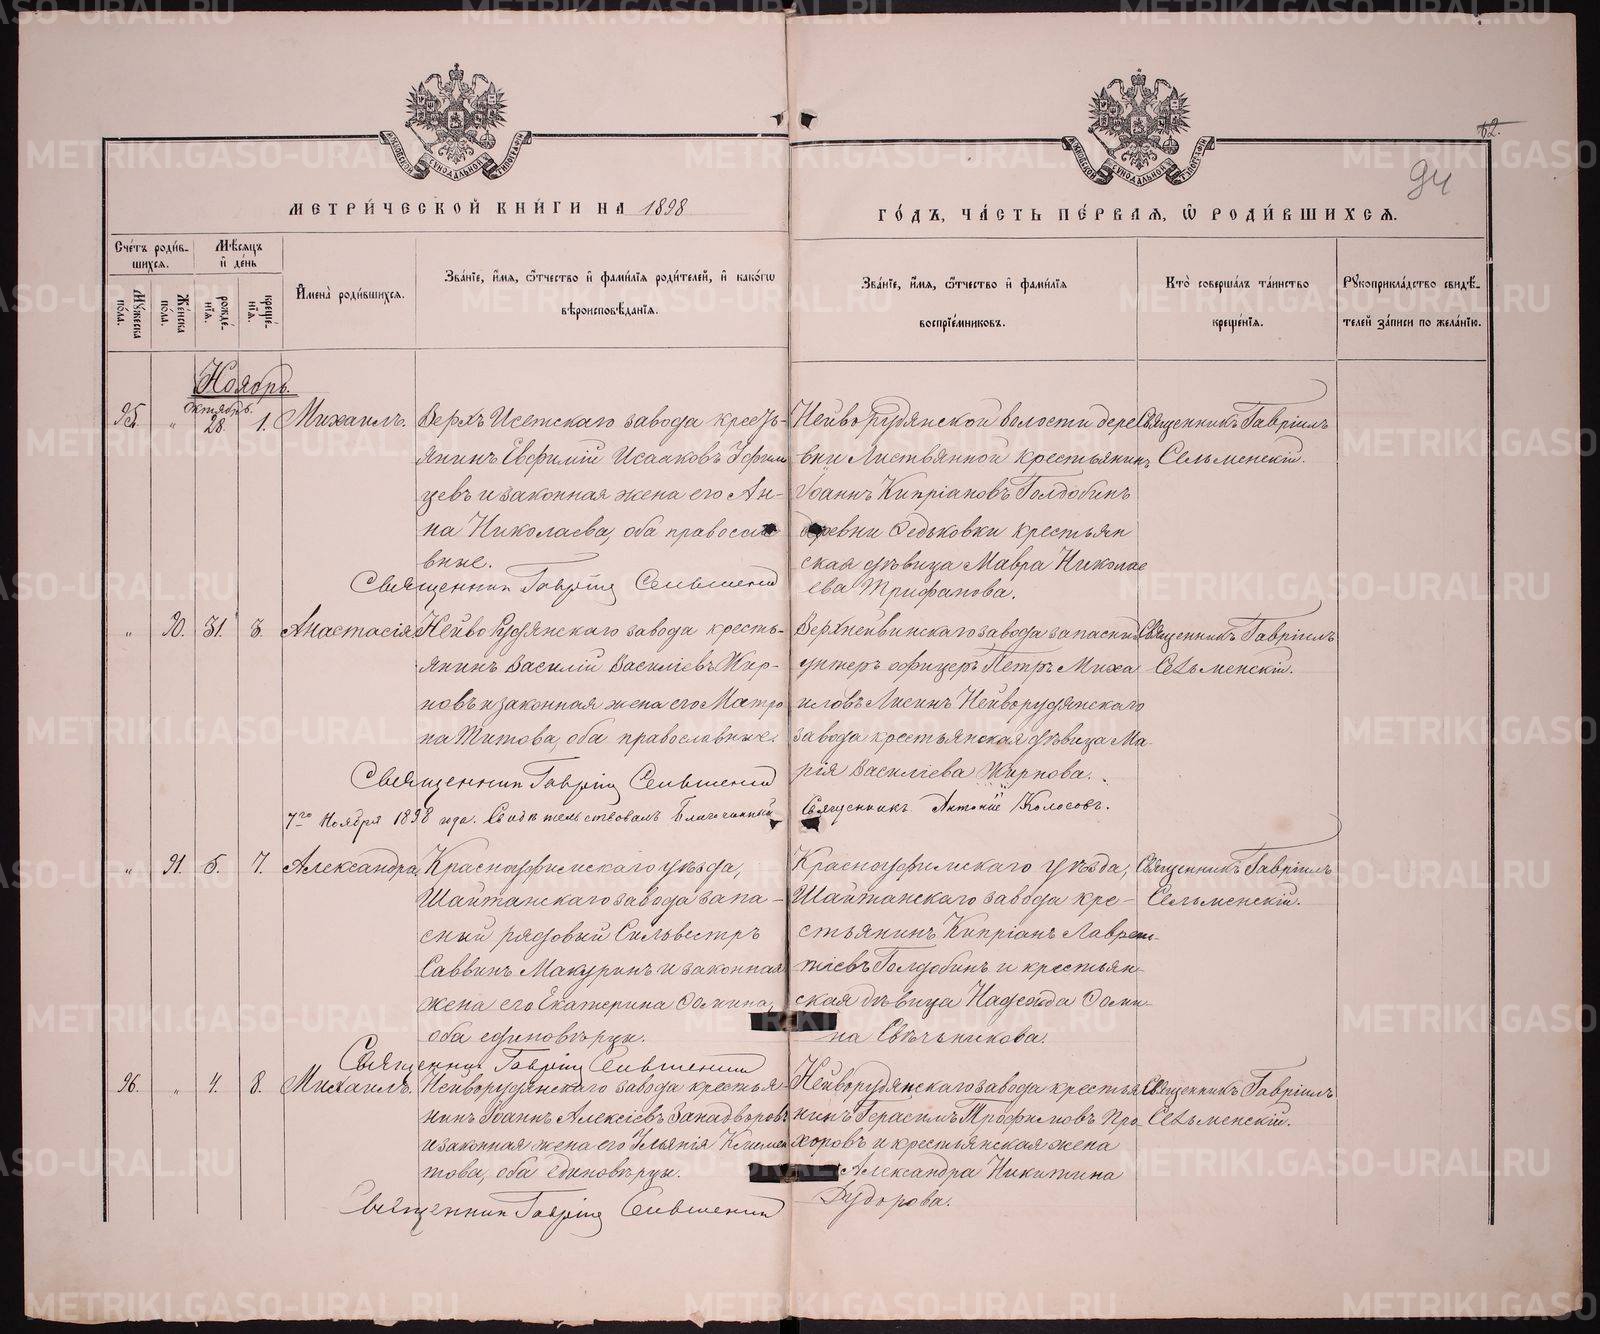 МЕТРИ́ЧЕСКОЙ КНИ́ГИ НА 1898
ГО́ДЪ, ЧА́СТЬ ПЕ́РВАЯ, Ѽ РОДИ́ВШИХСЯ.
94
Сче́тъ роди́в-
шихся.
Мѣ́сяцъ
и҆ де́нь
Му́жеска по́ла.
Же́нска по́ла.
рожде́-
нїя.
креще́-
нїя.
И҆мена̀ роди́вшихся.
Зва́нїе, и҆́мя, ѻ҆́тчество и҆ фами́лїя роди́телей, и҆ како́гѡ
вѣроисповѣ́данїя.
Зва́нїе, и҆́мя, ѻ҆́тчество и҆ фами́лїя
воспрїе́мниковъ.
Кто̀ соверша́лъ та́инство
креще́нїя.
Рꙋкоприкла́дство свидѣ́-
телей за́писи по жела́нїю.
Ноябрь.
Октябрь.
95. „ 28 1. Михаилъ.
Верхъ Исетскаго завода кресть-
янинъ Евфимій Исааковъ Уфим
цевъ и законная жена его Ан-
на Николаева, оба правосла
вные.
Священник Гавріил Сельменский
Нейво Рудянской волости дере
вни Листвянной крестьянинъ
Іоаннъ Кипріановъ Голдобинъ
деревни Федьковки крестьян
ская дѣвица Мавра Николае
ева Трифанова.
Священникъ Гавріилъ
Сельменскій.
„ 90. 31. 3. Анастасія
Нейво Рудянскаго завода кресть-
янинъ Василій Василіевъ Жир-
новъ и законная жена его Матро
на Титова, оба православные.
Священник Гавріил Сельменский
Верхнейвинскаго завода запасный
унтеръ офицеръ Петръ Миха
иловъ Лисинъ Нейворудянскаго
завода крестьянская дѣвица Ма-
рія Василіева Жирнова.
Священникъ Гавріилъ
Сельменскій.
7го Ноября 1898 года. Свидѣтельствовалъ Благочинный
Священникъ Антоній Колосовъ.
„ 91. 6. 7. Александра
Красноуфимскаго уѣзда,
Шайтанскаго завода запа-
сный рядовый Сильвестръ
Саввинъ Макуринъ и законная
жена его Екатерина Фомина,
оба единовѣрцы.
Священник Гавріил Сельменский
Красноуфимскаго уѣзда,
Шайтанскаго завода кре-
стьянинъ Кипріанъ Лаврен-
тіевъ Голдобинъ и крестьян-
ская дѣвица Надежда Фоми-
на Свѣчникова.
Священникъ Гавріилъ
Сельменскій.
96. „ 4. 8. Михаилъ.
Нейворудянскаго завода крестья-
нинъ Іоаннъ Алексіевъ Занадворовъ
и законная жена его Ульянія Климен
това, оба единовѣрцы.
Священник Гавріил Сельменский
Нейворудянскаго завода крестья
нинъ Герасимъ Трофимовъ Про
хоровъ и крестьянская жена
Александра Никитина
Федорова.
Священникъ Гавріилъ
Сельменскій.
METRIKI.GASO-URAL.RU